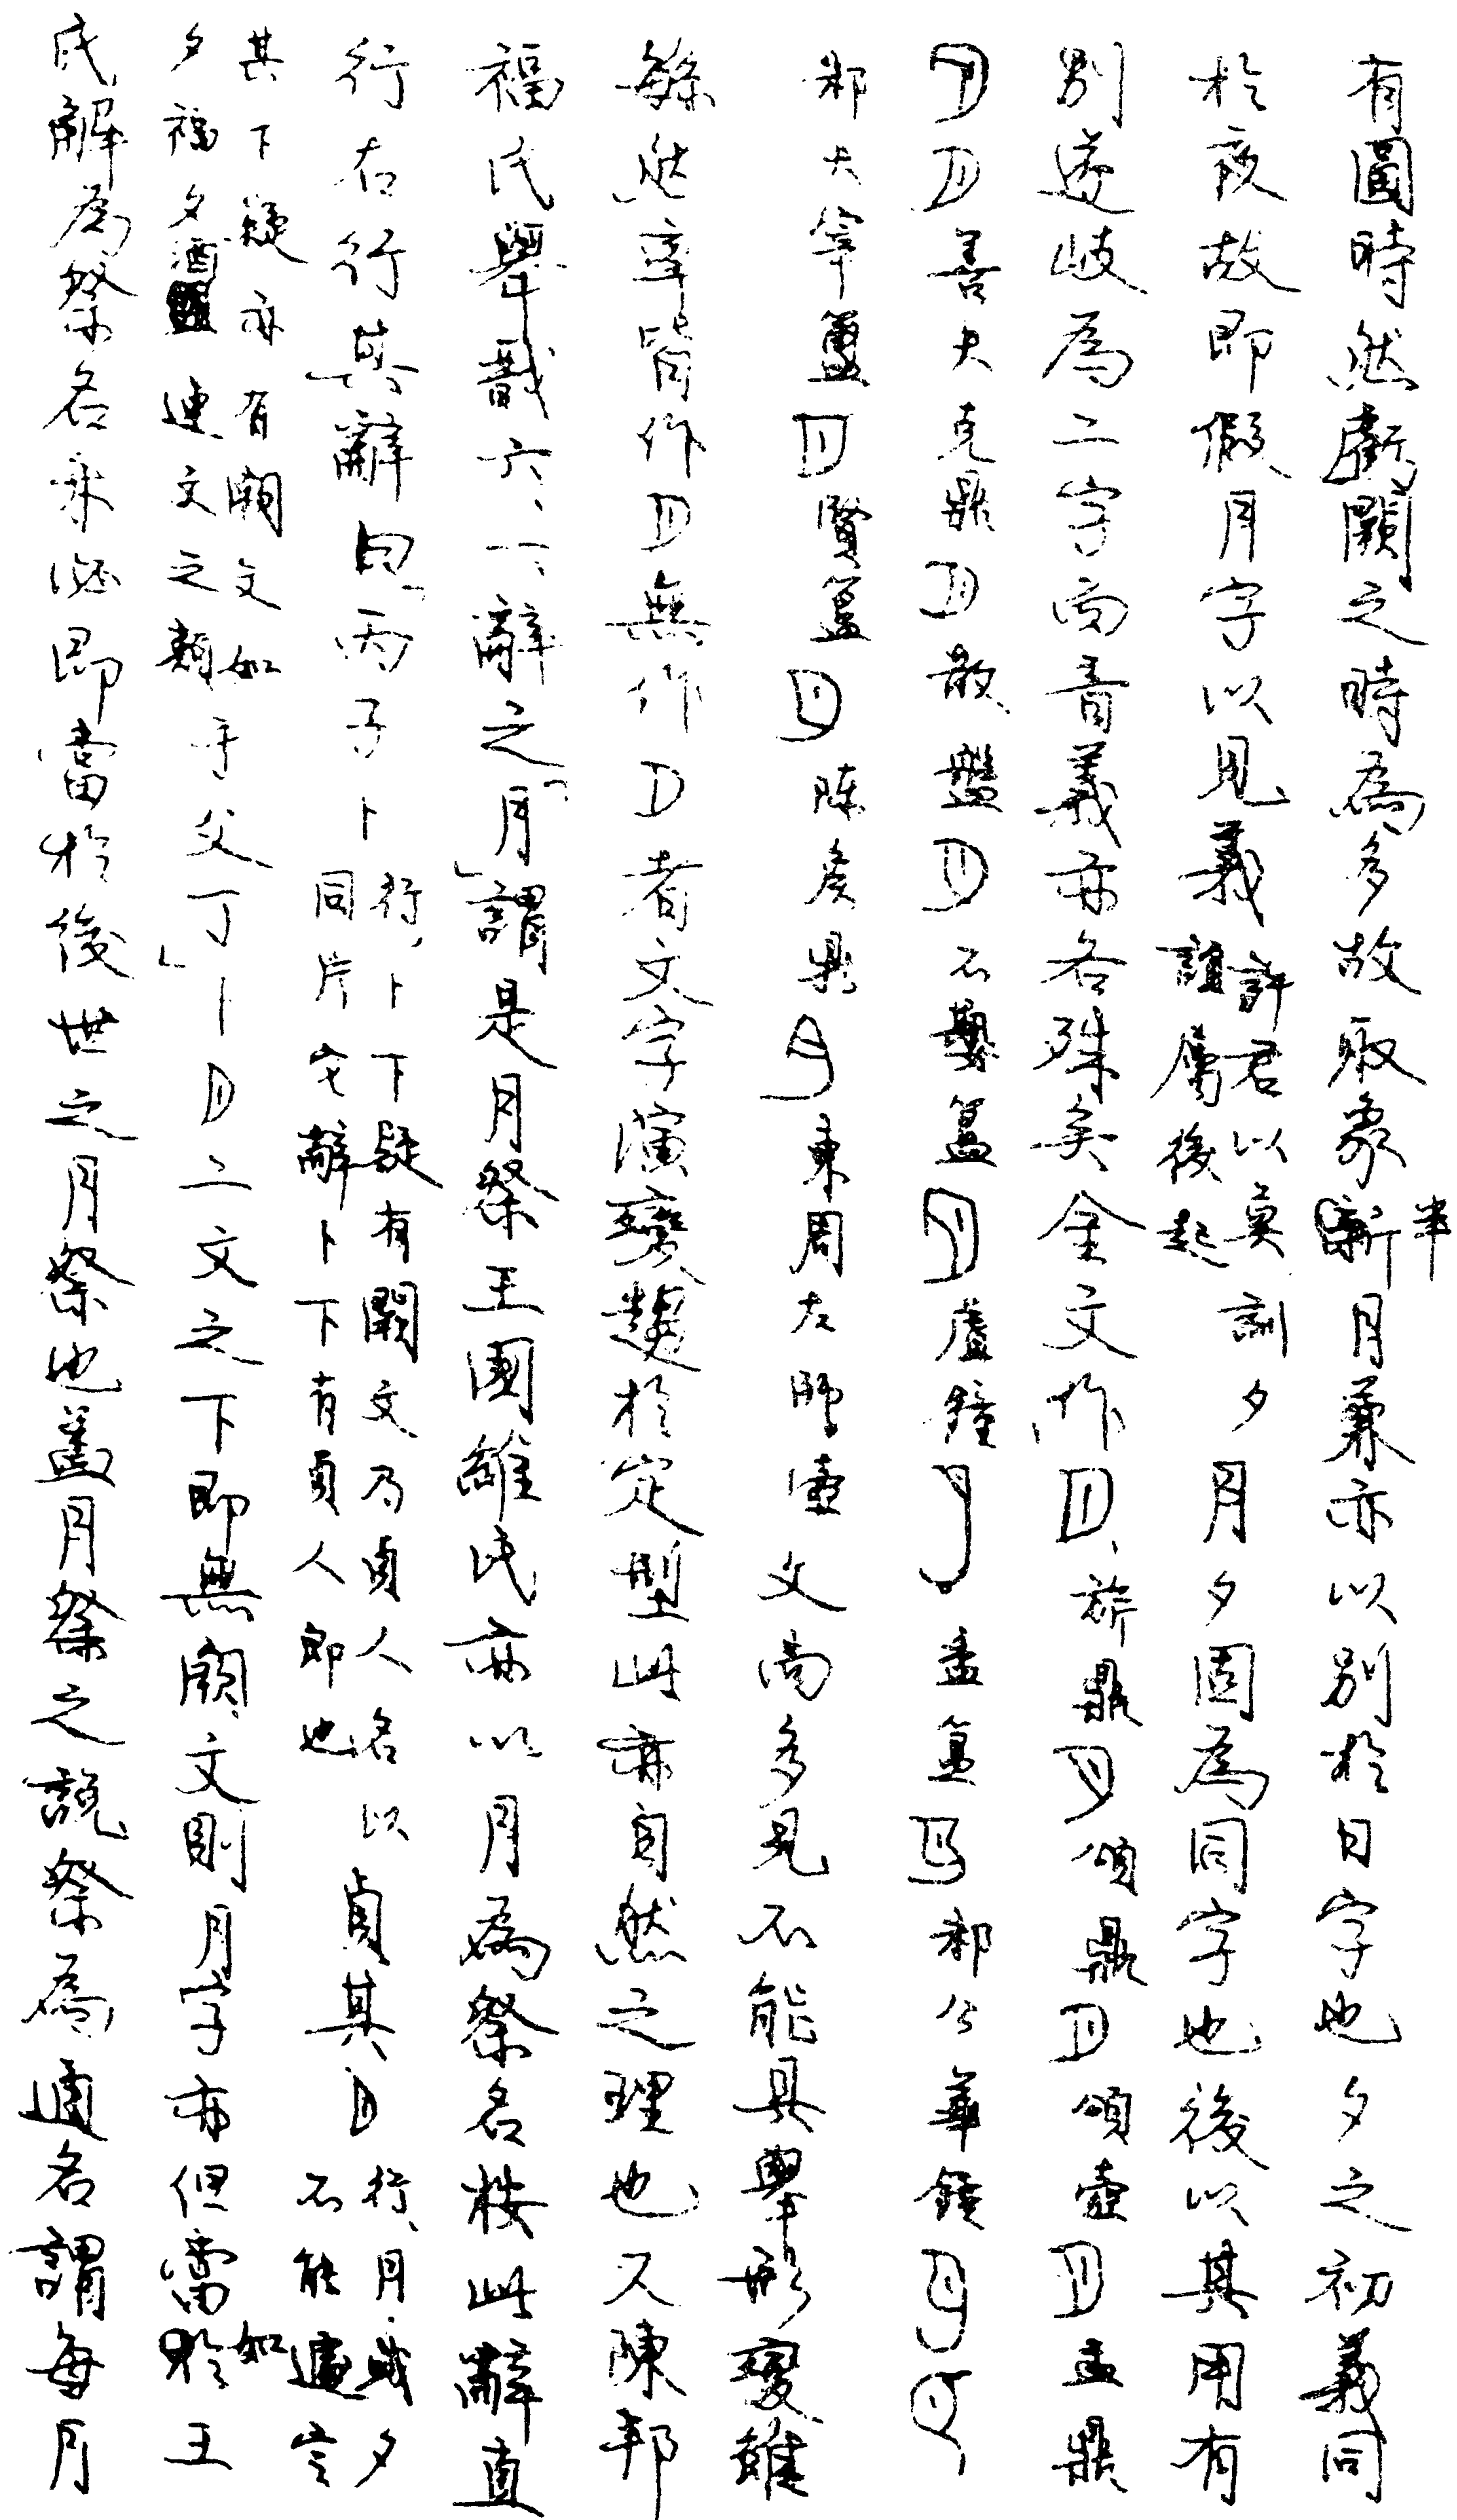 有圓時然虧闕之時為多故取象半月兼亦以別於日字也夕之初義同
於夜故即假月字以見義許君以莫訓夕誼屬後起月夕固為同字也後以其用有
別遂歧為二字而音義亦各殊矣金文作旂鼎頌鼎頌壺盂鼎
善夫克鼎散盤不𡢁簋虘鐘盂簋邾公華鐘
邾大宰簠賢簋陳侯鼎東周左師壺文尚多見不能具舉形變雖
緐然率皆作無作者文字演變趨於定型此亦自然之理也又陳邦
福氏舉戩六、一、辭之「月」謂是月祭王國維氏亦以月為祭名按此辭直
行右行其辭曰「丙子卜行、卜下疑有闕文乃貞人名以同片它辭卜下有貞人即也貞其行、月、或夕不能遽定
其下疑亦有闕文如夕福夕酒連文之類于父丁」卜二文之下即無闕文則月字亦但當如王
氏解為祭名未必即當於後世之月祭也蓋月祭之說祭為通名謂每月